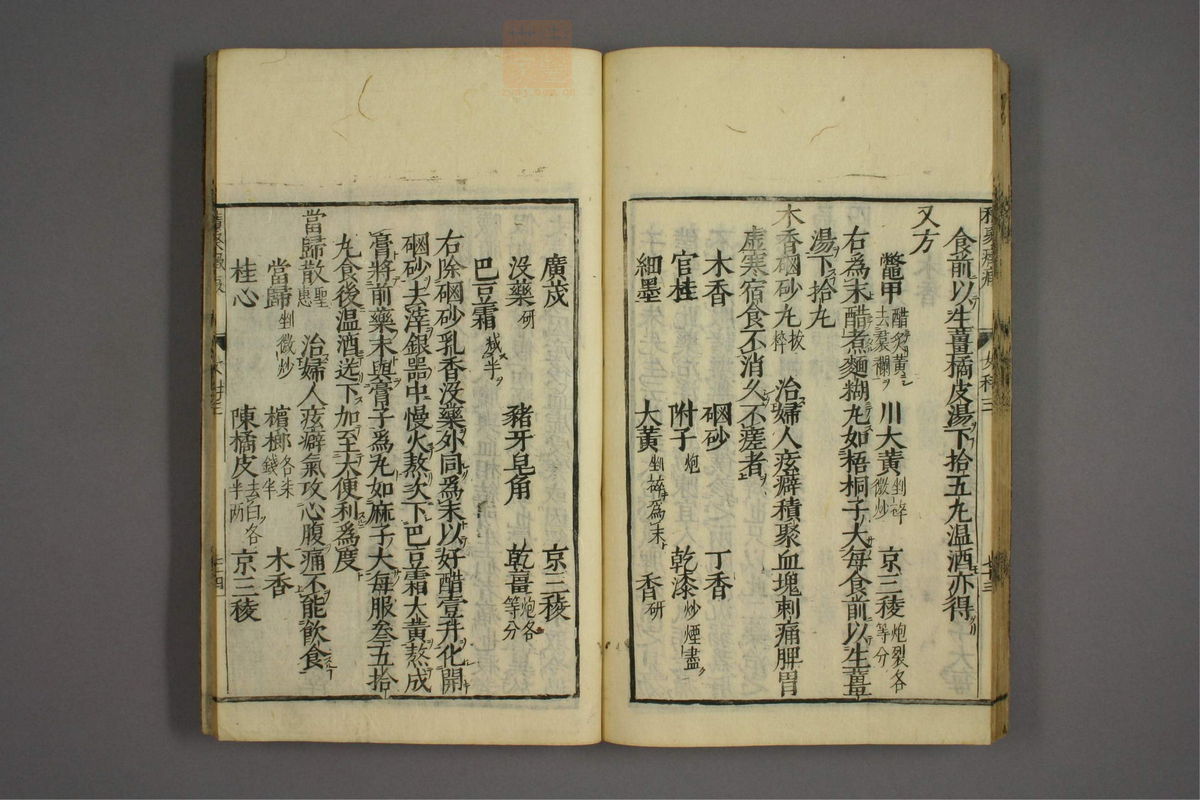 食前以生薑橘皮湯下拾五丸温酒亦得
又方
鼈甲醋炙黄去裙襴 川大黄剉碎微炒 京三稜炮裂各等分
右爲末醋煮麵糊丸如梧桐子大毎食前以生薑
湯下拾丸
木香硇砂丸拔粹 治婦人痃癖積聚血塊刺痛脾胃
虚寒宿食不消久不瘥者
木香 硇砂 丁香
官桂 附子炮 乾漆炒煙盡
細墨 大黄剉碎爲末 香研
女科三
廣茂 京三稜
没藥研 猪牙皂角 乾薑炮各等分
巴豆霜减半
右除硇砂乳香没藥外同爲末以好醋壹升化開
硇砂去滓銀噐中慢火熬次下巴豆霜大黄熬成
膏將前藥末與膏子爲丸如麻子大毎服叁五拾
丸食後温酒送下加至大便利爲度
當歸散聖惠 治婦人痃癖氣攻心腹痛不能飲食
當歸剉微炒 檳榔各朱錢半 木香
桂心 陳橘皮去白各半两 京三稜